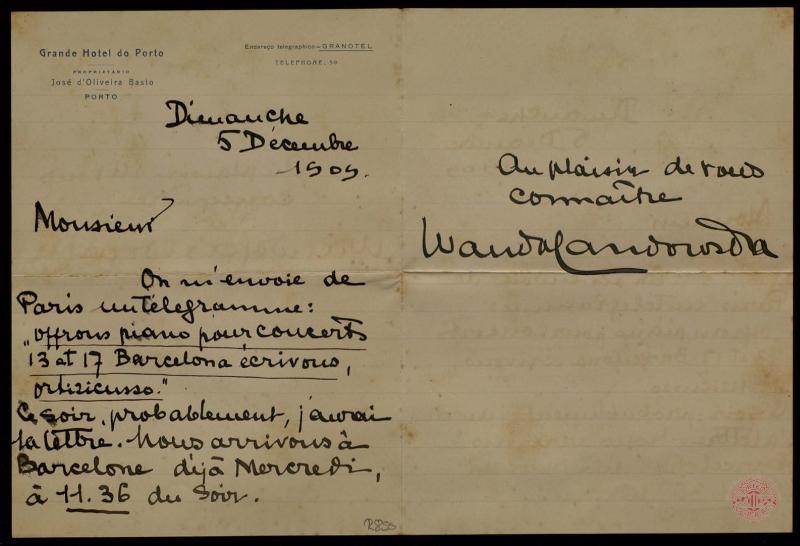 Grande Hotel do Porto
PROPRIETARIO
José d'Oliveira Basto
PORTO
Endereço telegraphico=GRANOTEL
TELEPHONE, 59
Dimanche
5 Décembre
1909.
Monsieur
On m'envoie de
Paris un télegramme:
„offrons piano pour concerts
13 et 17 Barcelona écrivons,
ortizicusso."
Ce soir, probablement, j'aurai
la lettre. Nous arrivons à
Barcelone déjà Mercredi,
à 11.36 du soir.
Au plaisir de vous
connaître
Wanda Landowska